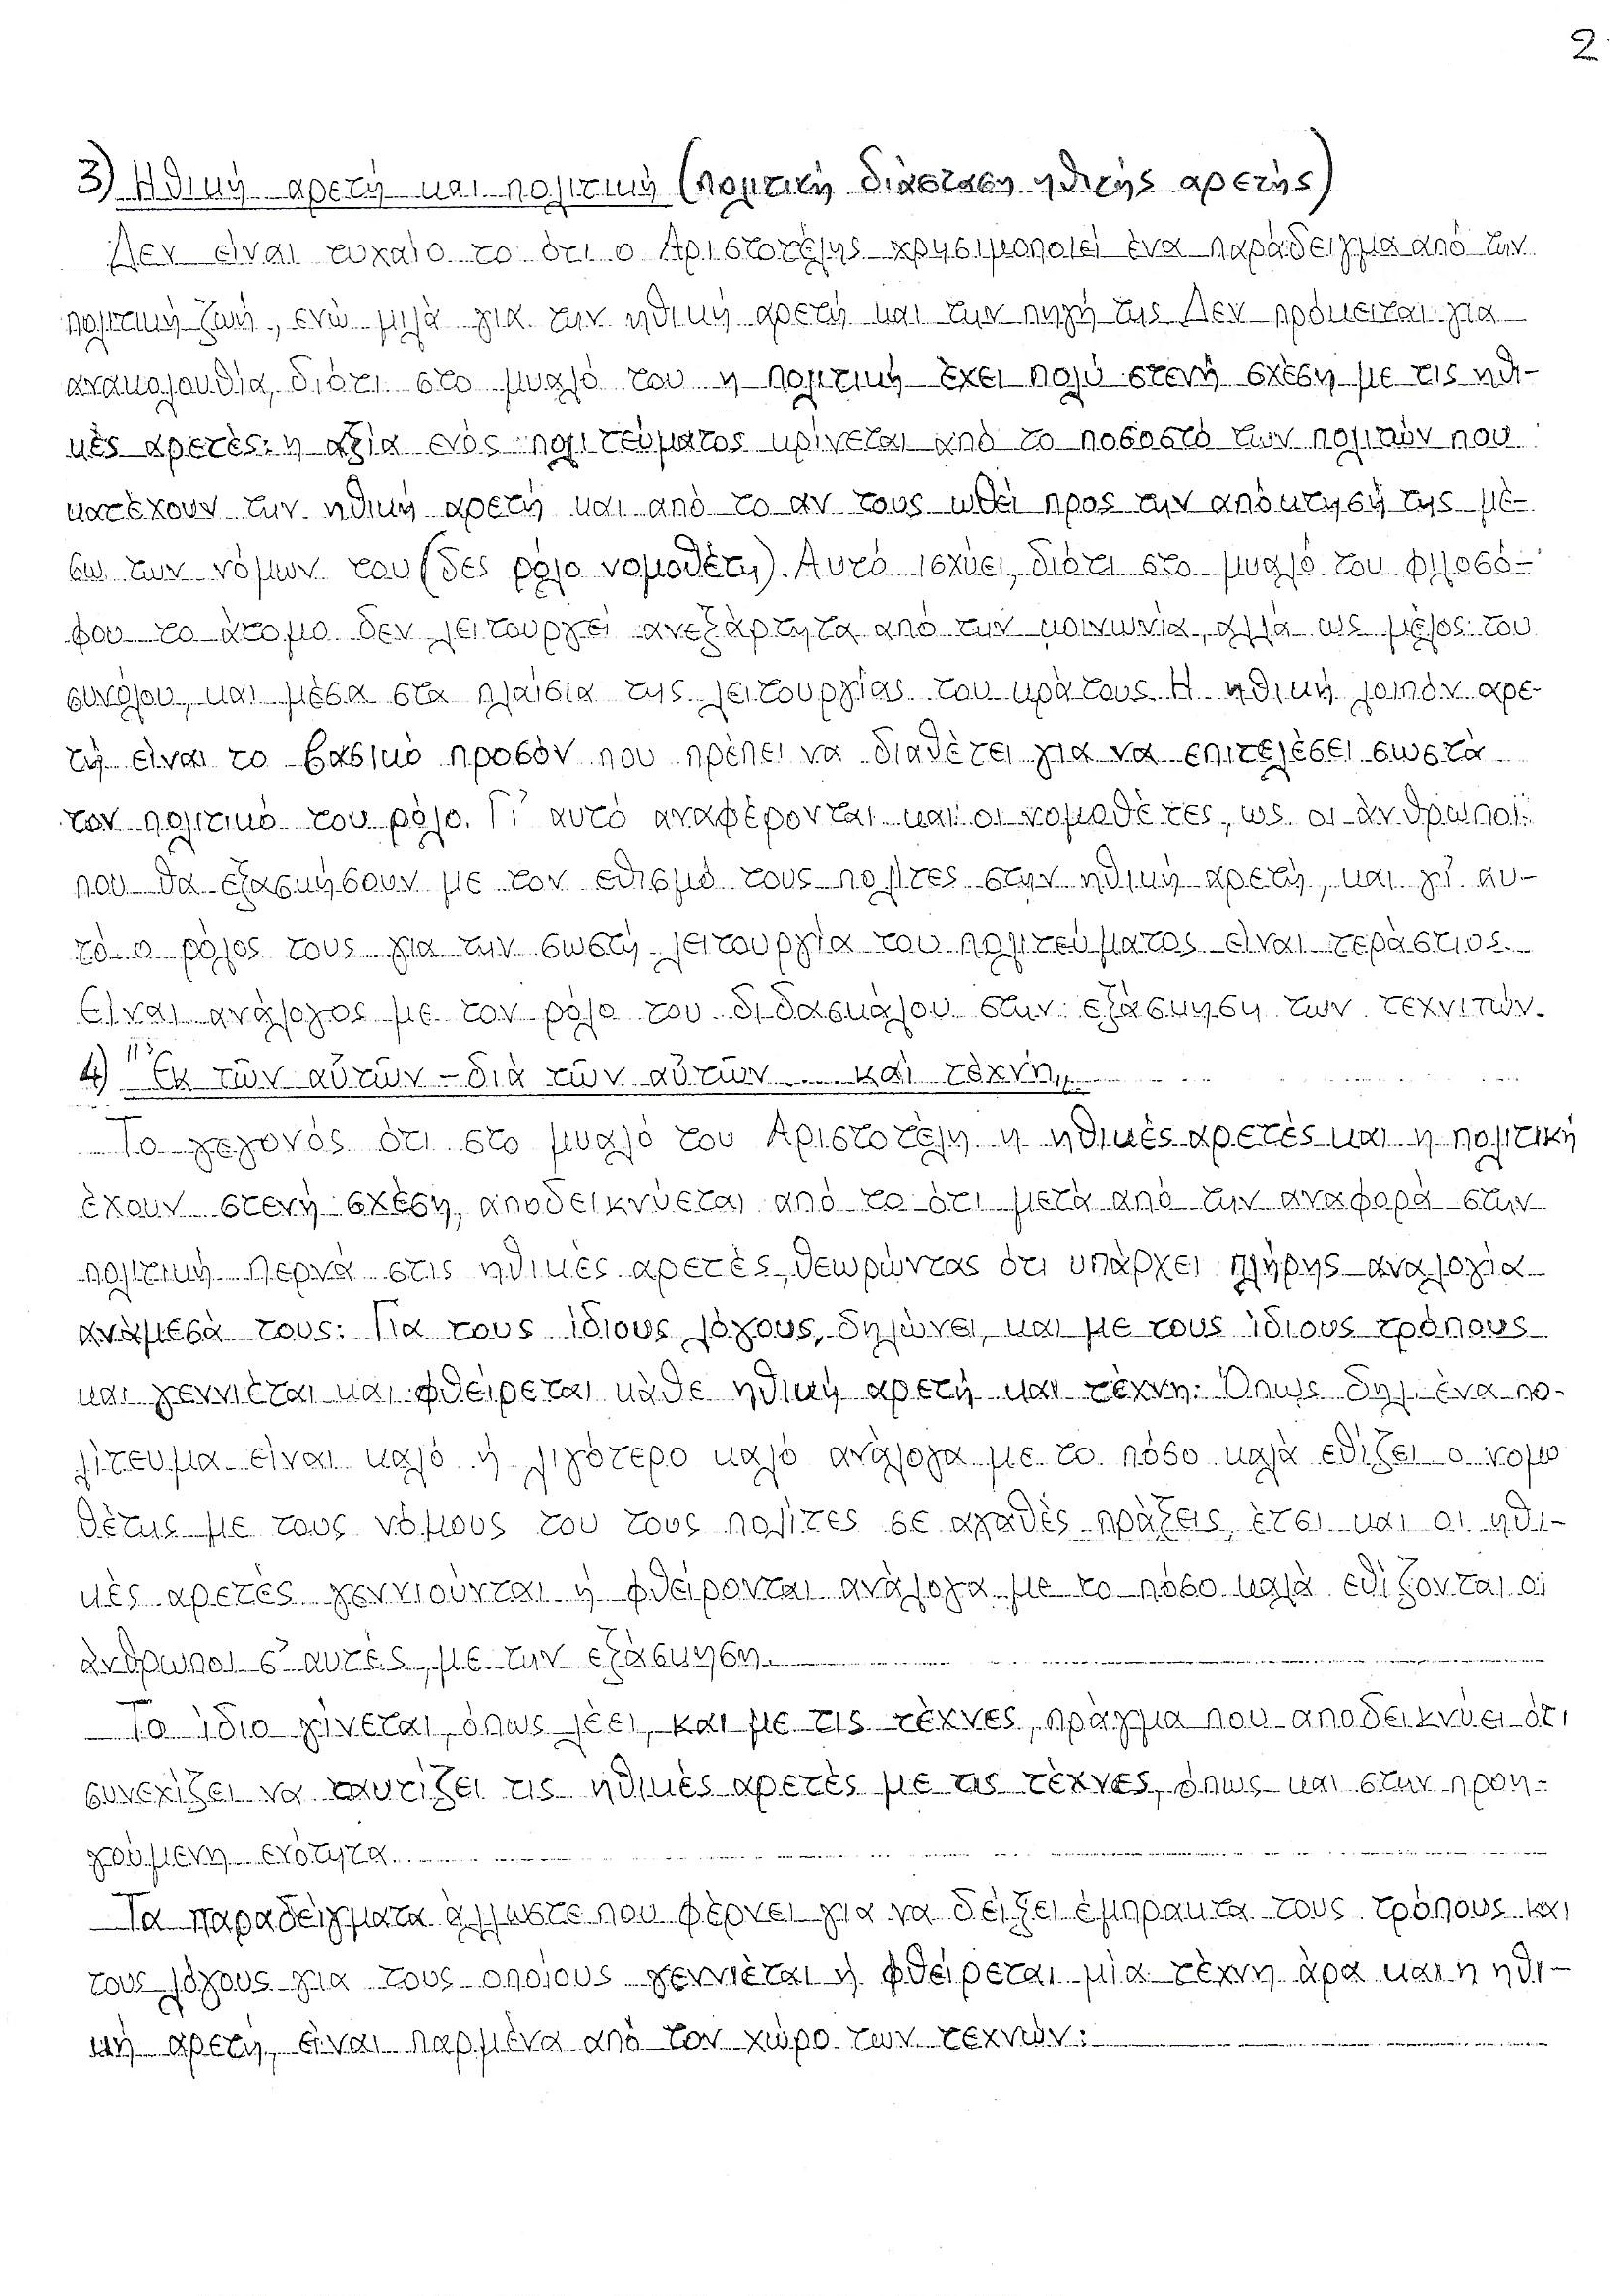 2
3) Ηθική αρετή και πολιτική (πολιτική διάσταση ηθικής αρετής)
Δεν είναι τυχαίο το ότι ο Αριστοτέλης χρησιμοποιεί ένα παράδειγμα από την
πολιτική ζωή, ενώ μιλά για την ηθική αρετή και την πηγή της Δεν πρόκειται για
ανακολουθία, διότι στο μυαλό του η πολιτική έχει πολύ στενή σχέση με τις ηθι-
κές αρετές: η αξία ενός πολιτεύματος κρίνεται από το ποσοστό των πολιτών που
κατέχουν την ηθική αρετή και από το αν τους ωθεί προς την απόκτησή της μέ-
σω των νόμων του (δες ρόλο νομοθέτη). Αυτό ισχύει, διότι στο μυαλό του φιλοσό-
φου το άτομο δεν λειτουργεί ανεξάρτητα από την κοινωνία, αλλά ως μέλος του
συνόλου, και μέσα στα πλαίσια της λειτουργίας του κράτους Η ηθική λοιπόν αρε-
τή είναι το βασικό προσόν που πρέπει να διαθέτει για να επιτελέσει σωστά
τον πολιτικό του ρόλο. Γι' αυτό αναφέρονται και οι νομοθέτες, ως οι άνθρωποι
που θα εξασκήσουν με τον εθισμό τους πολίτες στην ηθική αρετή, και γι' αυ-
τό ο ρόλος τους για την σωστή λειτουργία του πολιτεύματος είναι τεράστιος.
Είναι ανάλογος με τον ρόλο του διδασκάλου στην εξάσκηση των τεχνιτών.
4) "Ἐκ τῶν αὐτῶν - διὰ τῶν αὐτῶν .... καὶ τέχνη"
Το γεγονός ότι στο μυαλό του Αριστοτέλη η ηθικές αρετές και η πολιτική
έχουν στενή σχέση, αποδεικνύεται από το ότι μετά από την αναφορά στην
πολιτική περνά στις ηθικές αρετές, θεωρώντας ότι υπάρχει πλήρης αναλογία
ανάμεσά τους: Για τους ίδιους λόγους, δηλώνει, και με τους ίδιους τρόπους
και γεννιέται και φθείρεται κάθε ηθική αρετή και τέχνη: Όπως δηλ. ένα πο-
λίτευμα είναι καλό ή λιγότερο καλό ανάλογα με το πόσο καλά εθίζει ο νομο
θέτης με τους νόμους του τους πολίτες σε αγαθές πράξεις, έτσι και οι ηθι-
κές αρετές γεννιούνται ή φθείρονται ανάλογα με το πόσο καλά εθίζονται οι
άνθρωποι σ' αυτές, με την εξάσκηση.
Το ίδιο γίνεται, όπως λέει, και με τις τέχνες, πράγμα που αποδεικνύει ότι
συνεχίζει να ταυτίζει τις ηθικές αρετές με τις τέχνες, όπως και στην προη-
γούμενη ενότητα.
Τα παραδείγματα άλλωστε που φέρνει για να δείξει έμπρακτα τους τρόπους και
τους λόγους για τους οποίους γεννιέται ή φθείρεται μία τέχνη άρα και η ηθι-
κή αρετή, είναι παρμένα από τον χώρο των τεχνών: